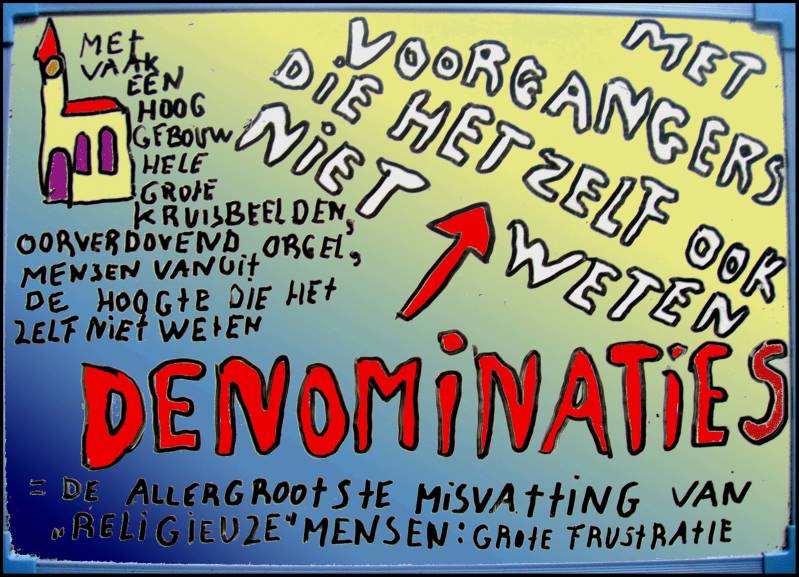 MET
VAAK
EEN
HOOG
GEBOUW
HELE
GROTE
KRUISBEELDEN,
OORVERDOVEND ORGEL,
MENSEN VANUIT
DE HOOGTE DIE HET
ZELF NIET WETEN
MET
VOORGANGERS
DIE HET ZELF OOK
NIET WETEN
DENOMINATIES
= DE ALLERGROOTSTE MISVATTING VAN
„RELIGIEUZE" MENSEN: GROTE FRUSTRATIE